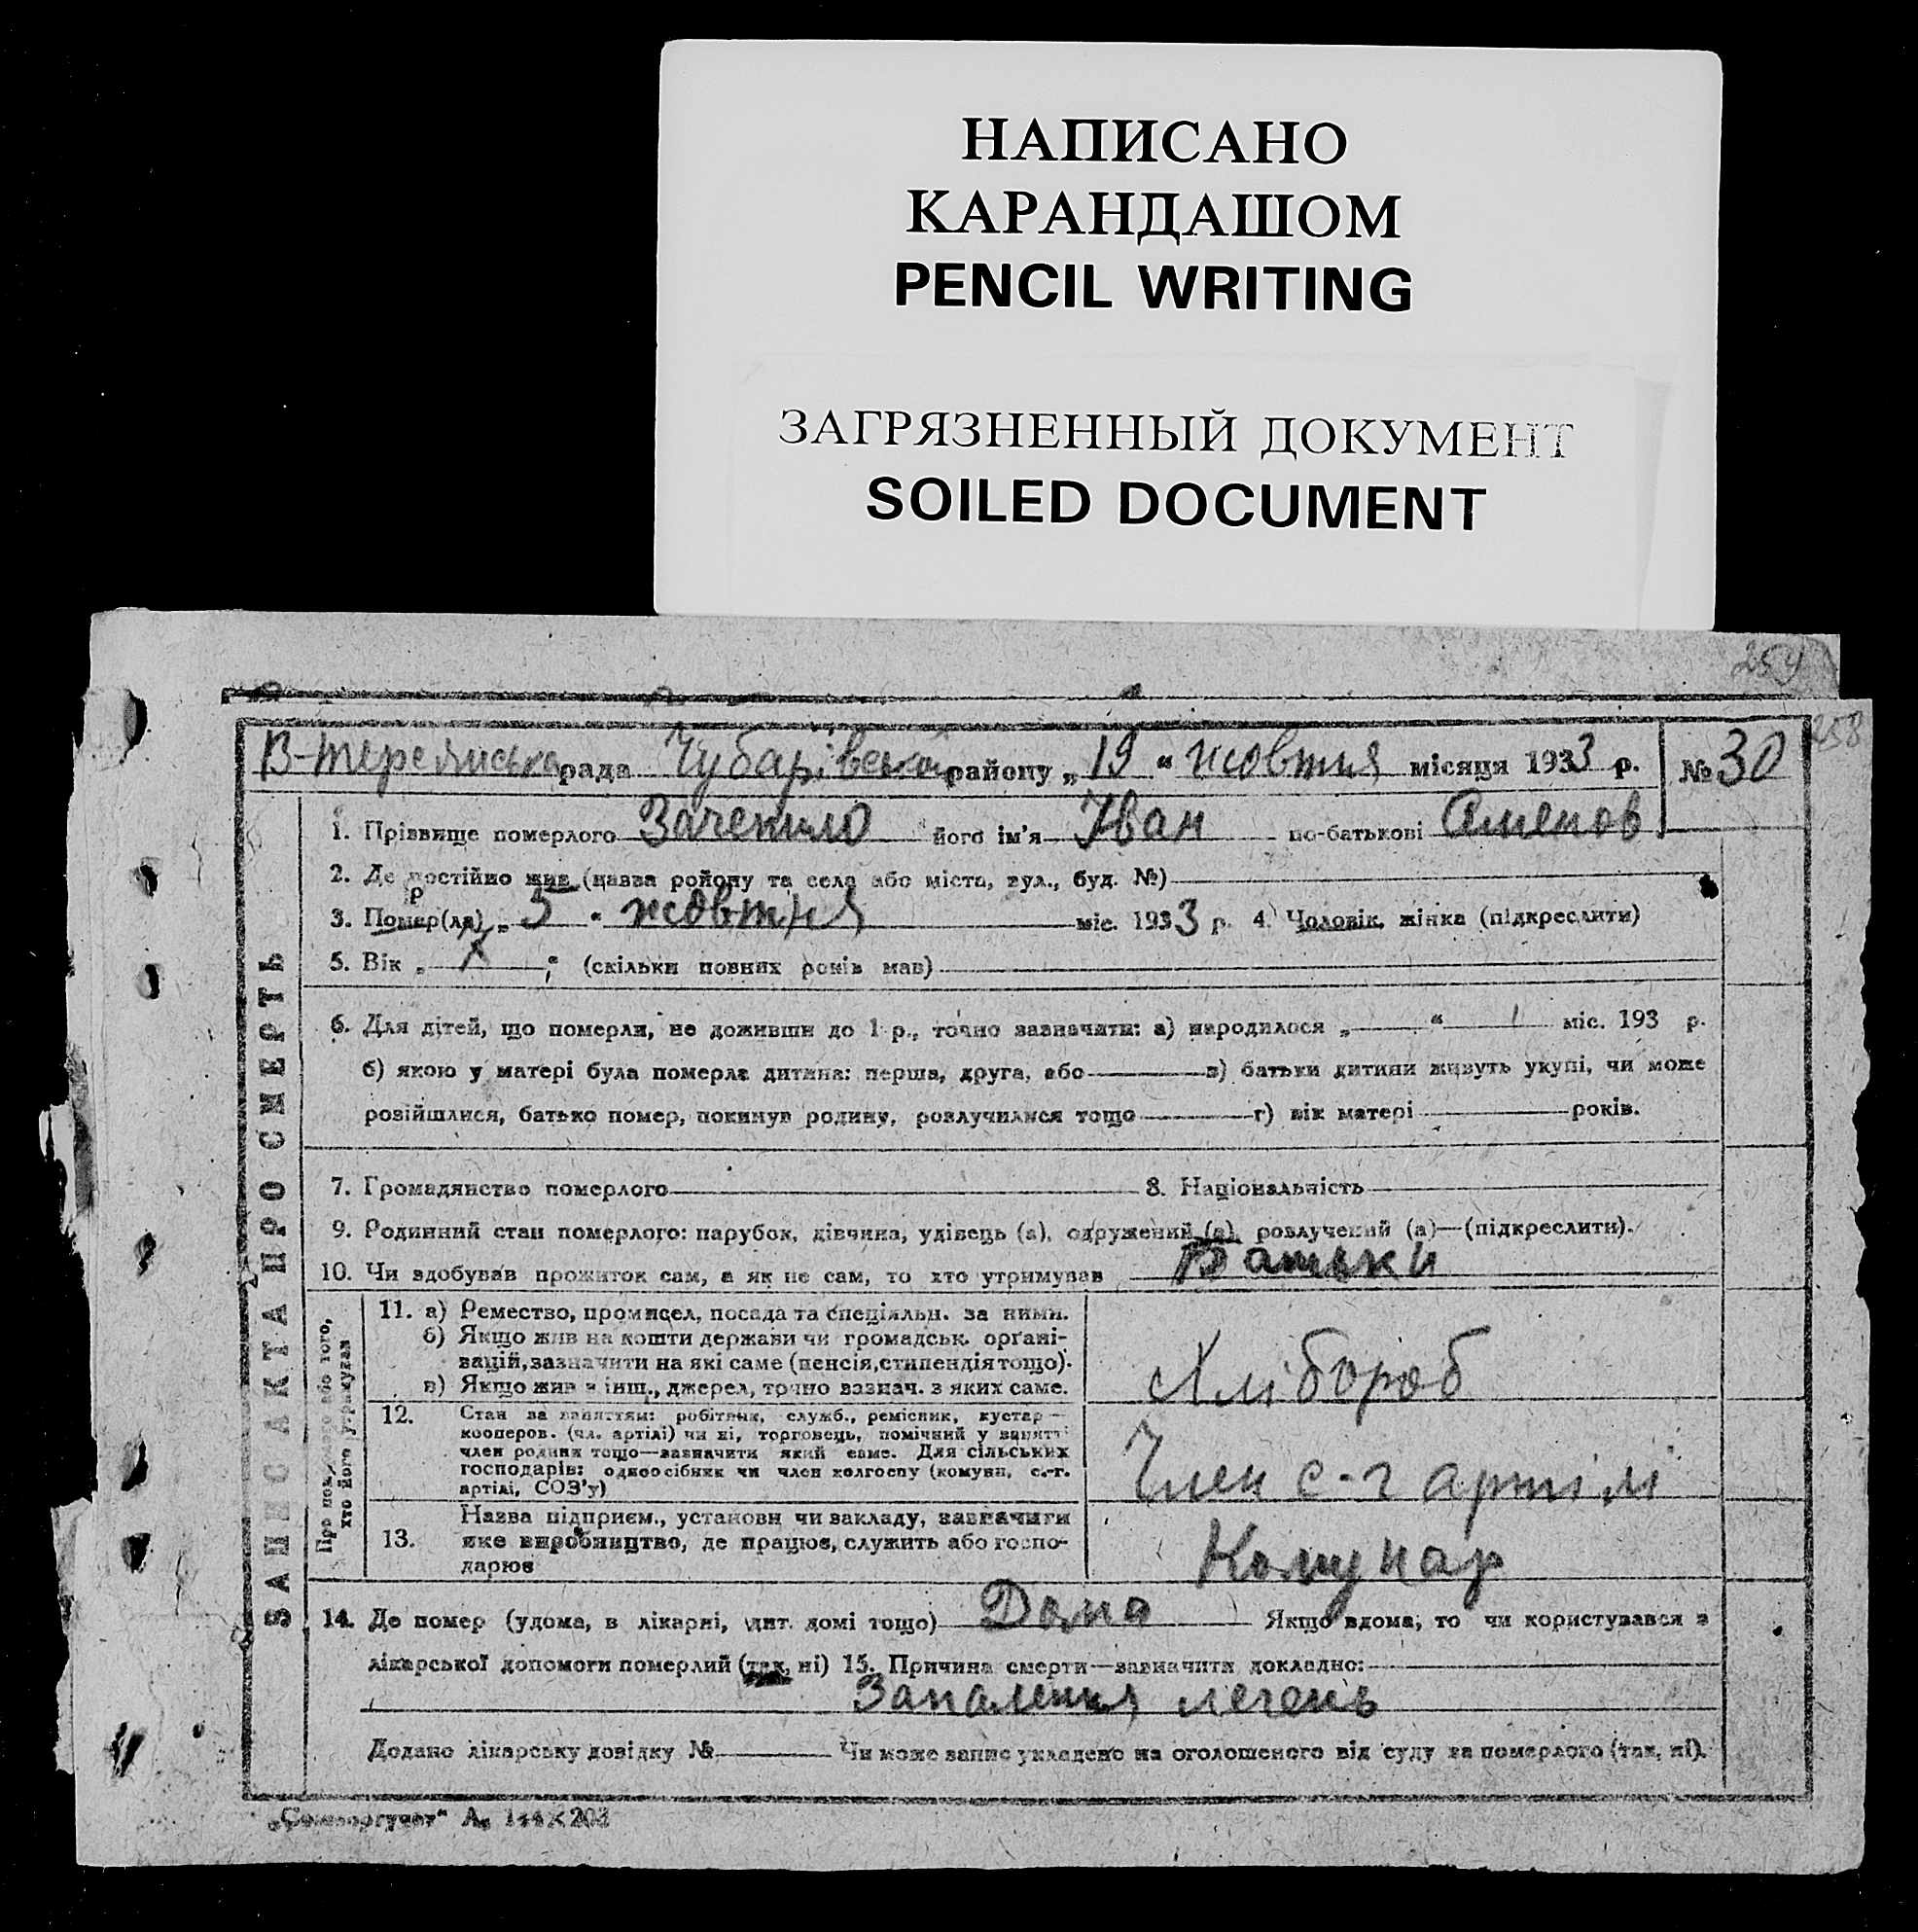 НАПИСАНО
КАРАНДАШОМ
PENCIL WRITING
ЗАГРЯЗНЕННЫЙ ДОКУМЕНТ
SOILED DOCUMENT
254
258
рада Чубарівського району „19“ жовтня місяця 1933 р. № 30
1. Прізвище померлого Зачепило його ім'я Іван по-батькові
2. Де постійно жив (назва району та села або міста, вул., буд. №)
3. Помер(ла) „5“ жовтня міс. 1933 р. 4. Чоловік, жінка (підкреслити)
5. Вік „ “ (скільки повних років мав)
6. Для дітей, що померли, не доживши до 1 р., точно зазначити: а) народилося „ “ міс. 193 р.
б) якою у матері була померла дитина: перша, друга, або в) батьки дитини живуть укупі, чи може
розійшлися, батько помер, покинув родину, розлучилися тощо г) вік матері років.
7. Громадянство померлого 8. Національність
9. Родинний стан померлого: парубок, дівчина, удівець (а), одружений (а), розлучений (а)—(підкреслити).
10. Чи здобував прожиток сам, а як не сам, то хто утримував Батьки
ЗАПИС АКТА ПРО СМЕРТЬ
хто його утримував
11. а) Ремество, промисел, посада та спеціяльн. за ними.
б) Якщо жив на кошти держави чи громадськ. органі-
зацій, зазначити на які саме (пенсія, стипендія тощо).
в) Якщо жив з інш., джерел, точно зазнач. з яких саме.
Хлібороб
12. Стан за заняттям: робітник, служб., ремісник, кустар—
кооперов. (чл. артілі) чи ні, торговець, помічний у занятті
член родини тощо—зазначити який саме. Для сільських
господарів: одноосібник чи член колгоспу (комуни, с.-г.
артілі, СОЗ'у)
Член с-г артілі
13. Назва підприєм., установи чи закладу, зазначити
яке виробництво, де працює, служить або госпо-
дарює
Комунар
14. Де помер (удома, в лікарні, дит. домі тощо) Дома Якщо вдома, то чи користувався з
лікарської допомоги померлий (так, ні) 15. Причина смерти—зазначити докладно:
Запалення легень
Додано лікарську довідку № Чи може запис укладено на оголошеного від суду за померлого (так, ні).